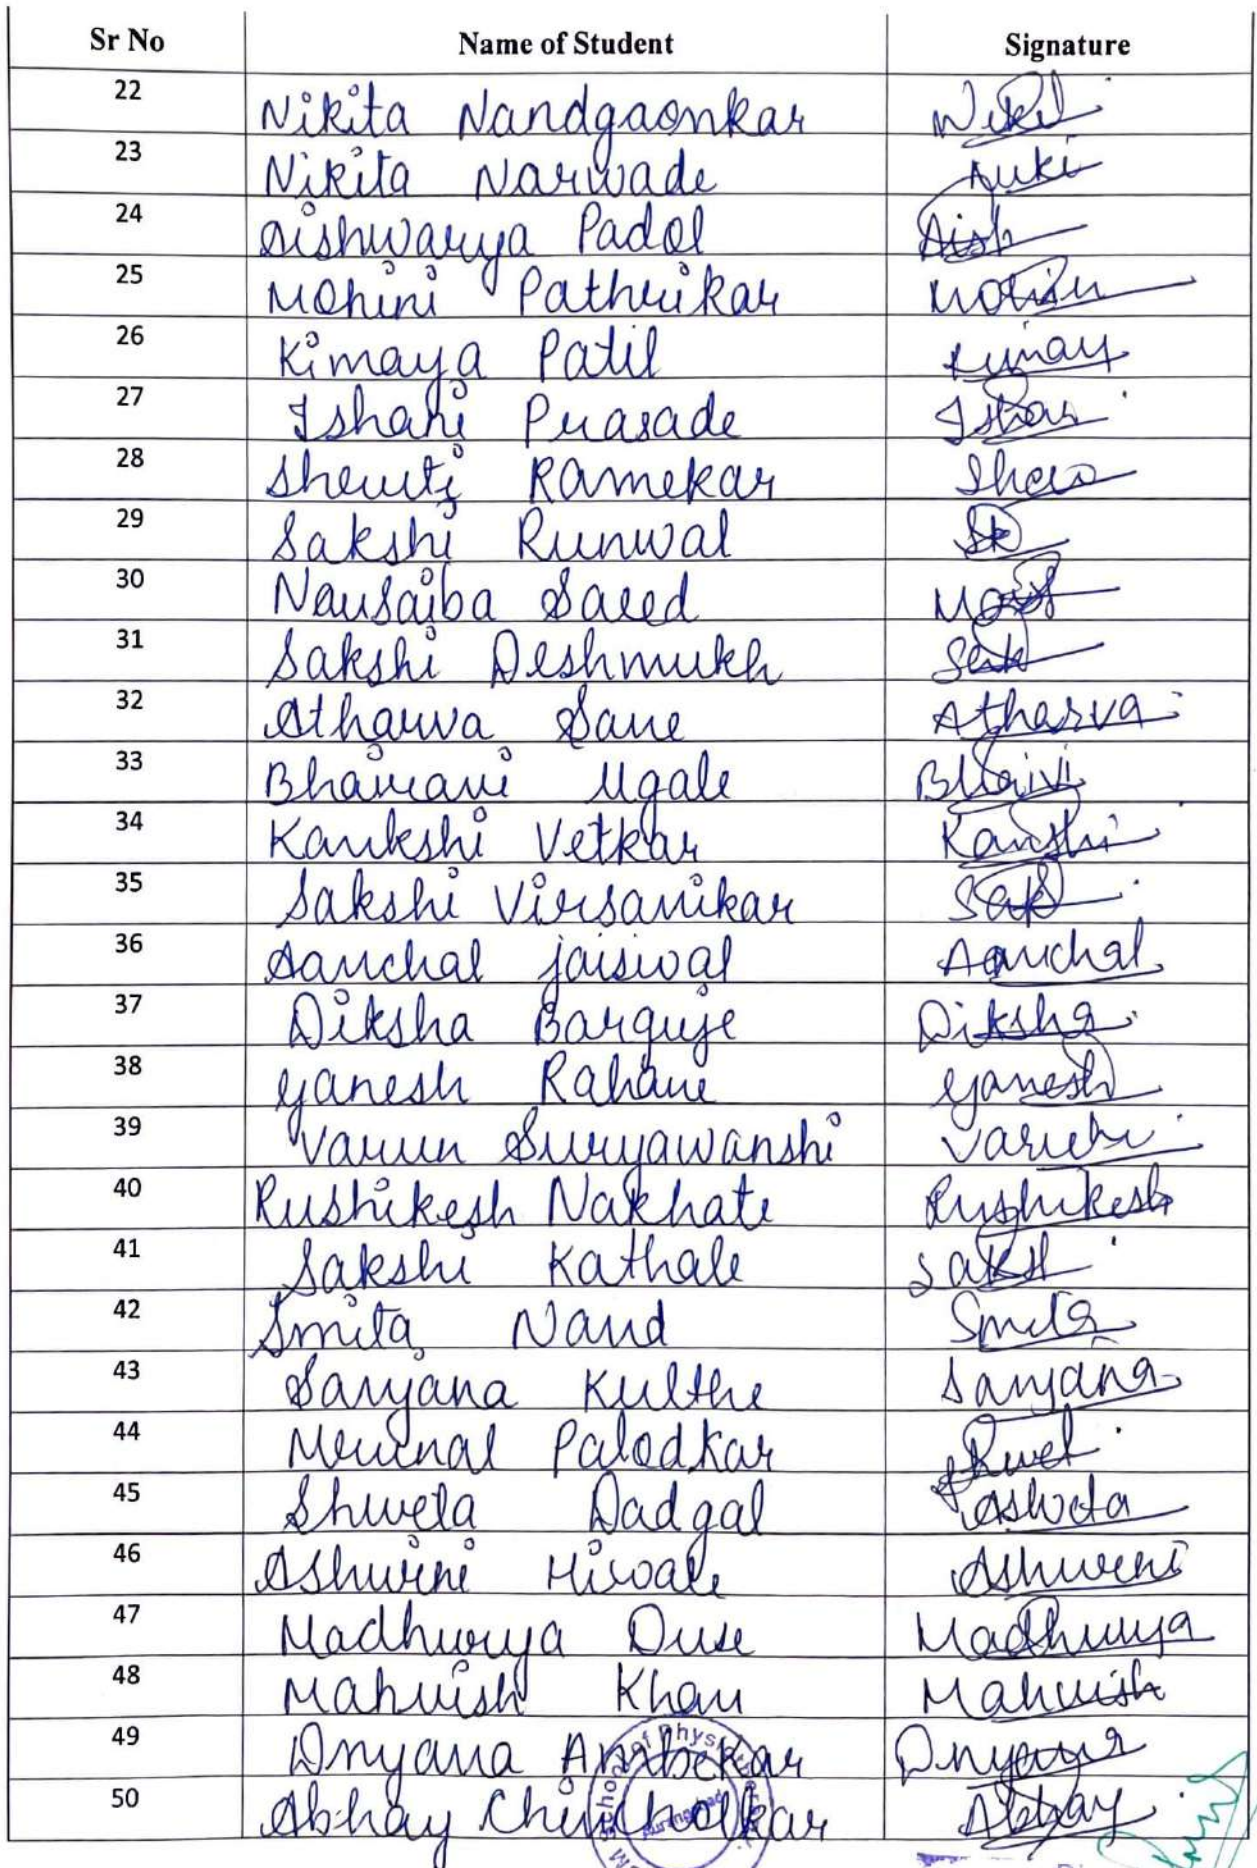 Sr No Name of Student Signature
22 Nikita Nandgaonkar Nikit
23 Nikita Narwade Nuki
24 Aishwarya Padol Aish
25 Mohini Pathrikar Mohini
26 Kimaya Patil Kimay
27 Ishani Prasade Ishan
28 Shruti Ramekar
29 Sakshi Runwal SR
30 Nausaiba Saeed
31 Sakshi Deshmukh
32 Atharva Sane Atharva
33 Bhairavi Ugale Bhaivi
34 Kankshi Vetkar Kankshi
35 Sakshi Virsanikar Sak
36 Aanchal jaiswal Aanchal
37 Diksha Barguje Diksha
38 Ganesh Rahane Ganesh
39 Varun Suryawanshi Varun
40 Rushikesh Nakhate Rushikesh
41 Sakshi Kathale Saksh
42 Smita Nand Smita
43 Sanjana Kulthe Sanjana
44 Mrunal Palodkar
45 Shweta Dadgal Ashweta
46 Ashwini Hiwale Ashwini
47 Madhurya Duse Madhurya
48 Mahvish Khan Mahvish
49 Dnyana Ambekar Dnyana
50 Abhay Chincholkar Abhay
School of Physi
Aurangabad